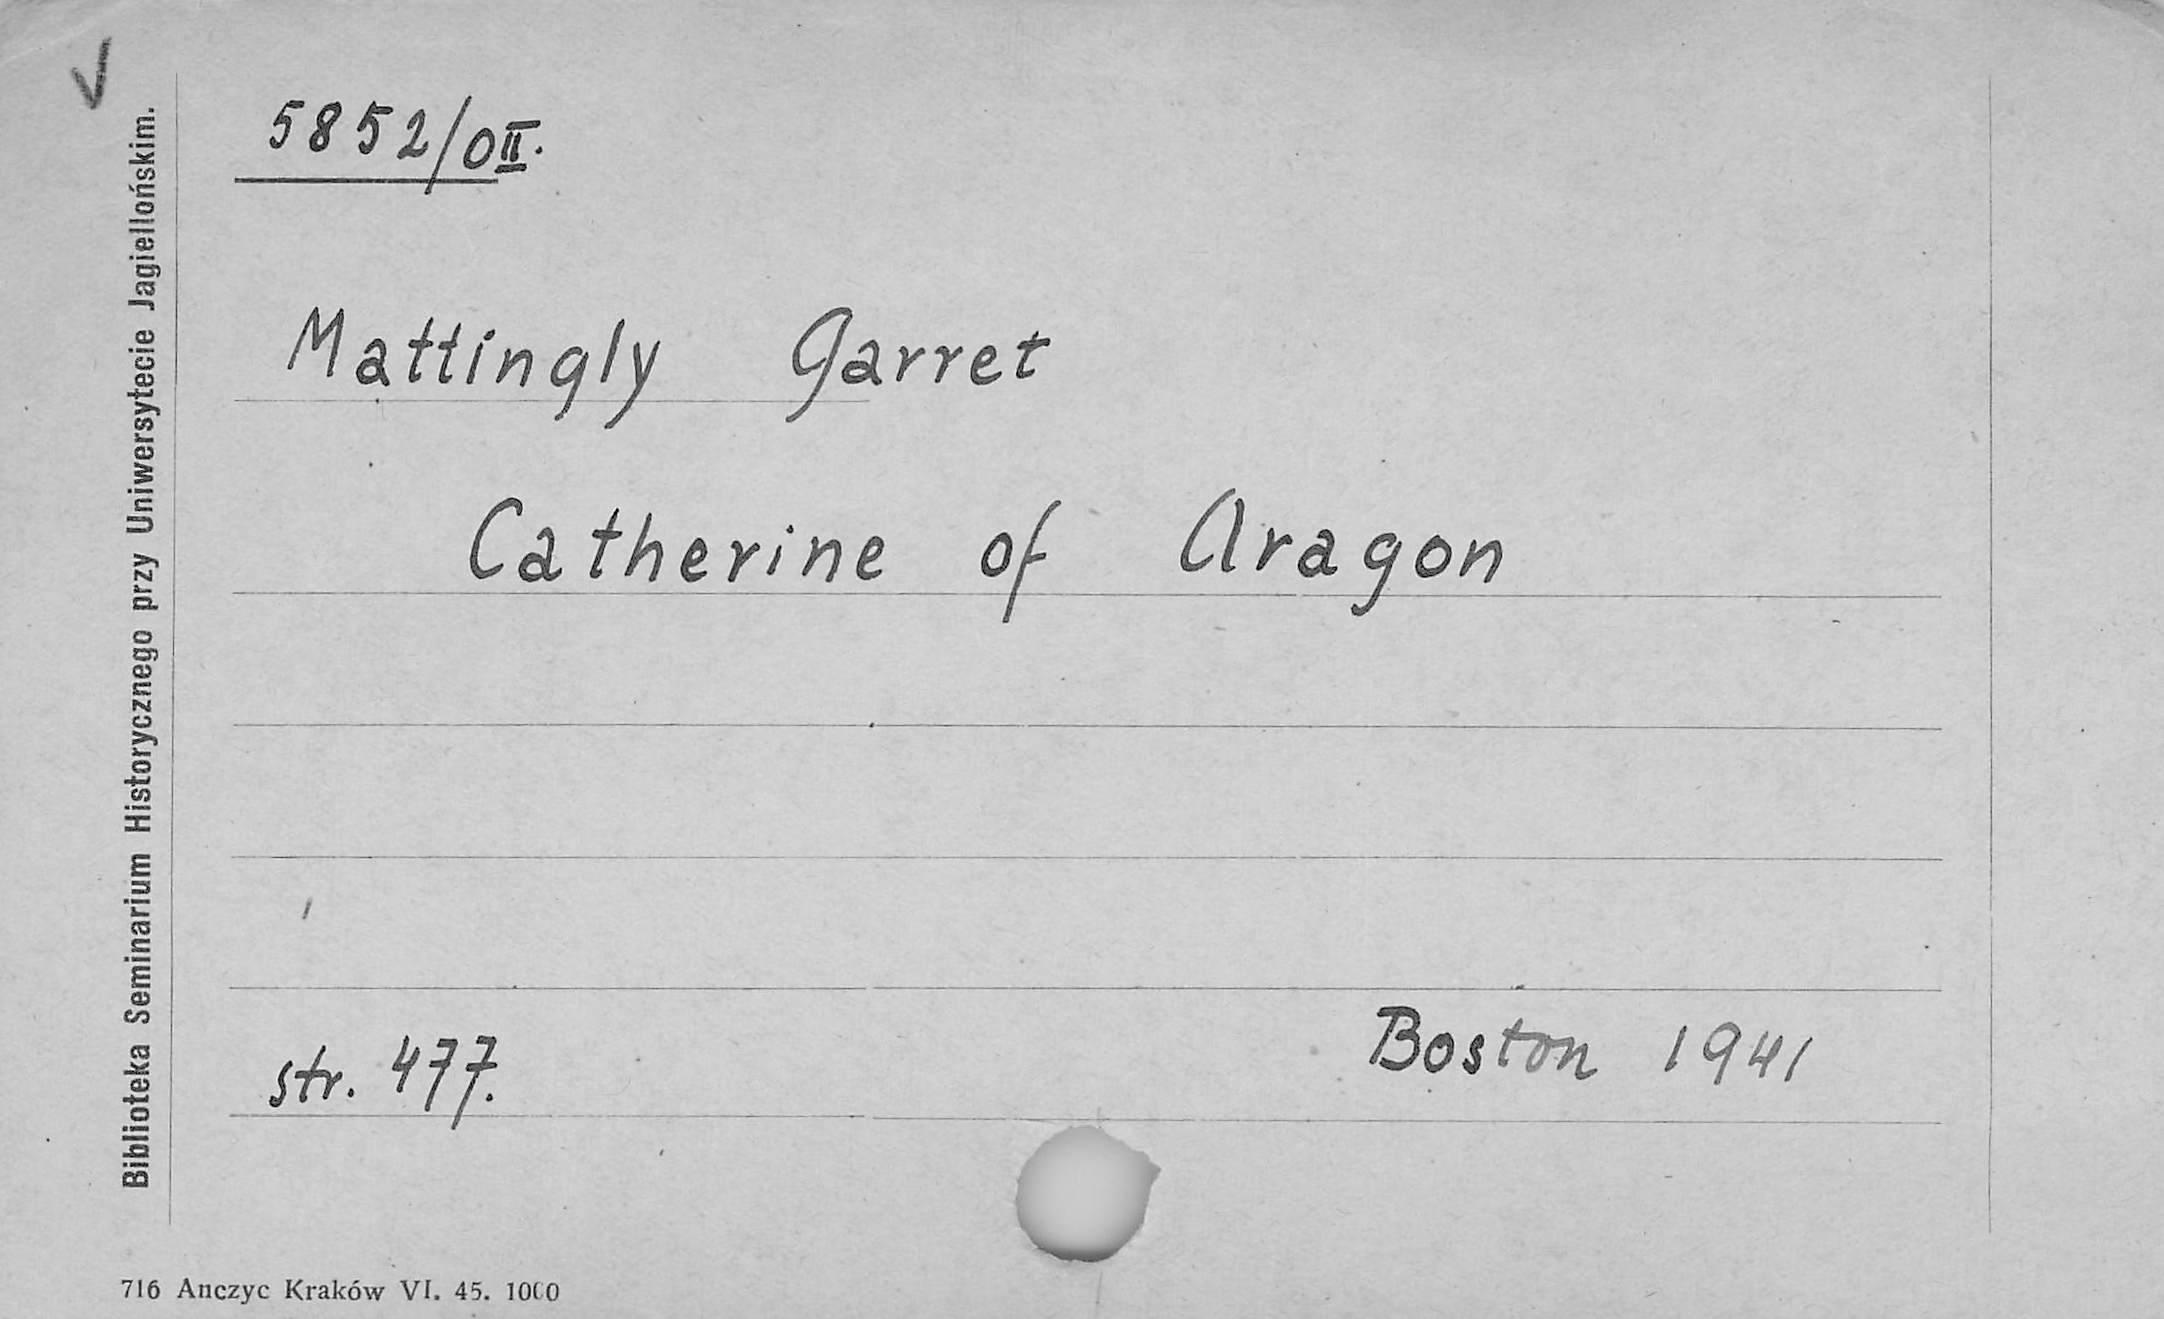 V
5852/OII.
Mattingly Garret
Catherine of Aragon
str. 477.
Boston 1941
Biblioteka Seminarium Historycznego przy Uniwersytecie Jagiellońskim.
716 Anczyc Kraków VI. 45. 1000